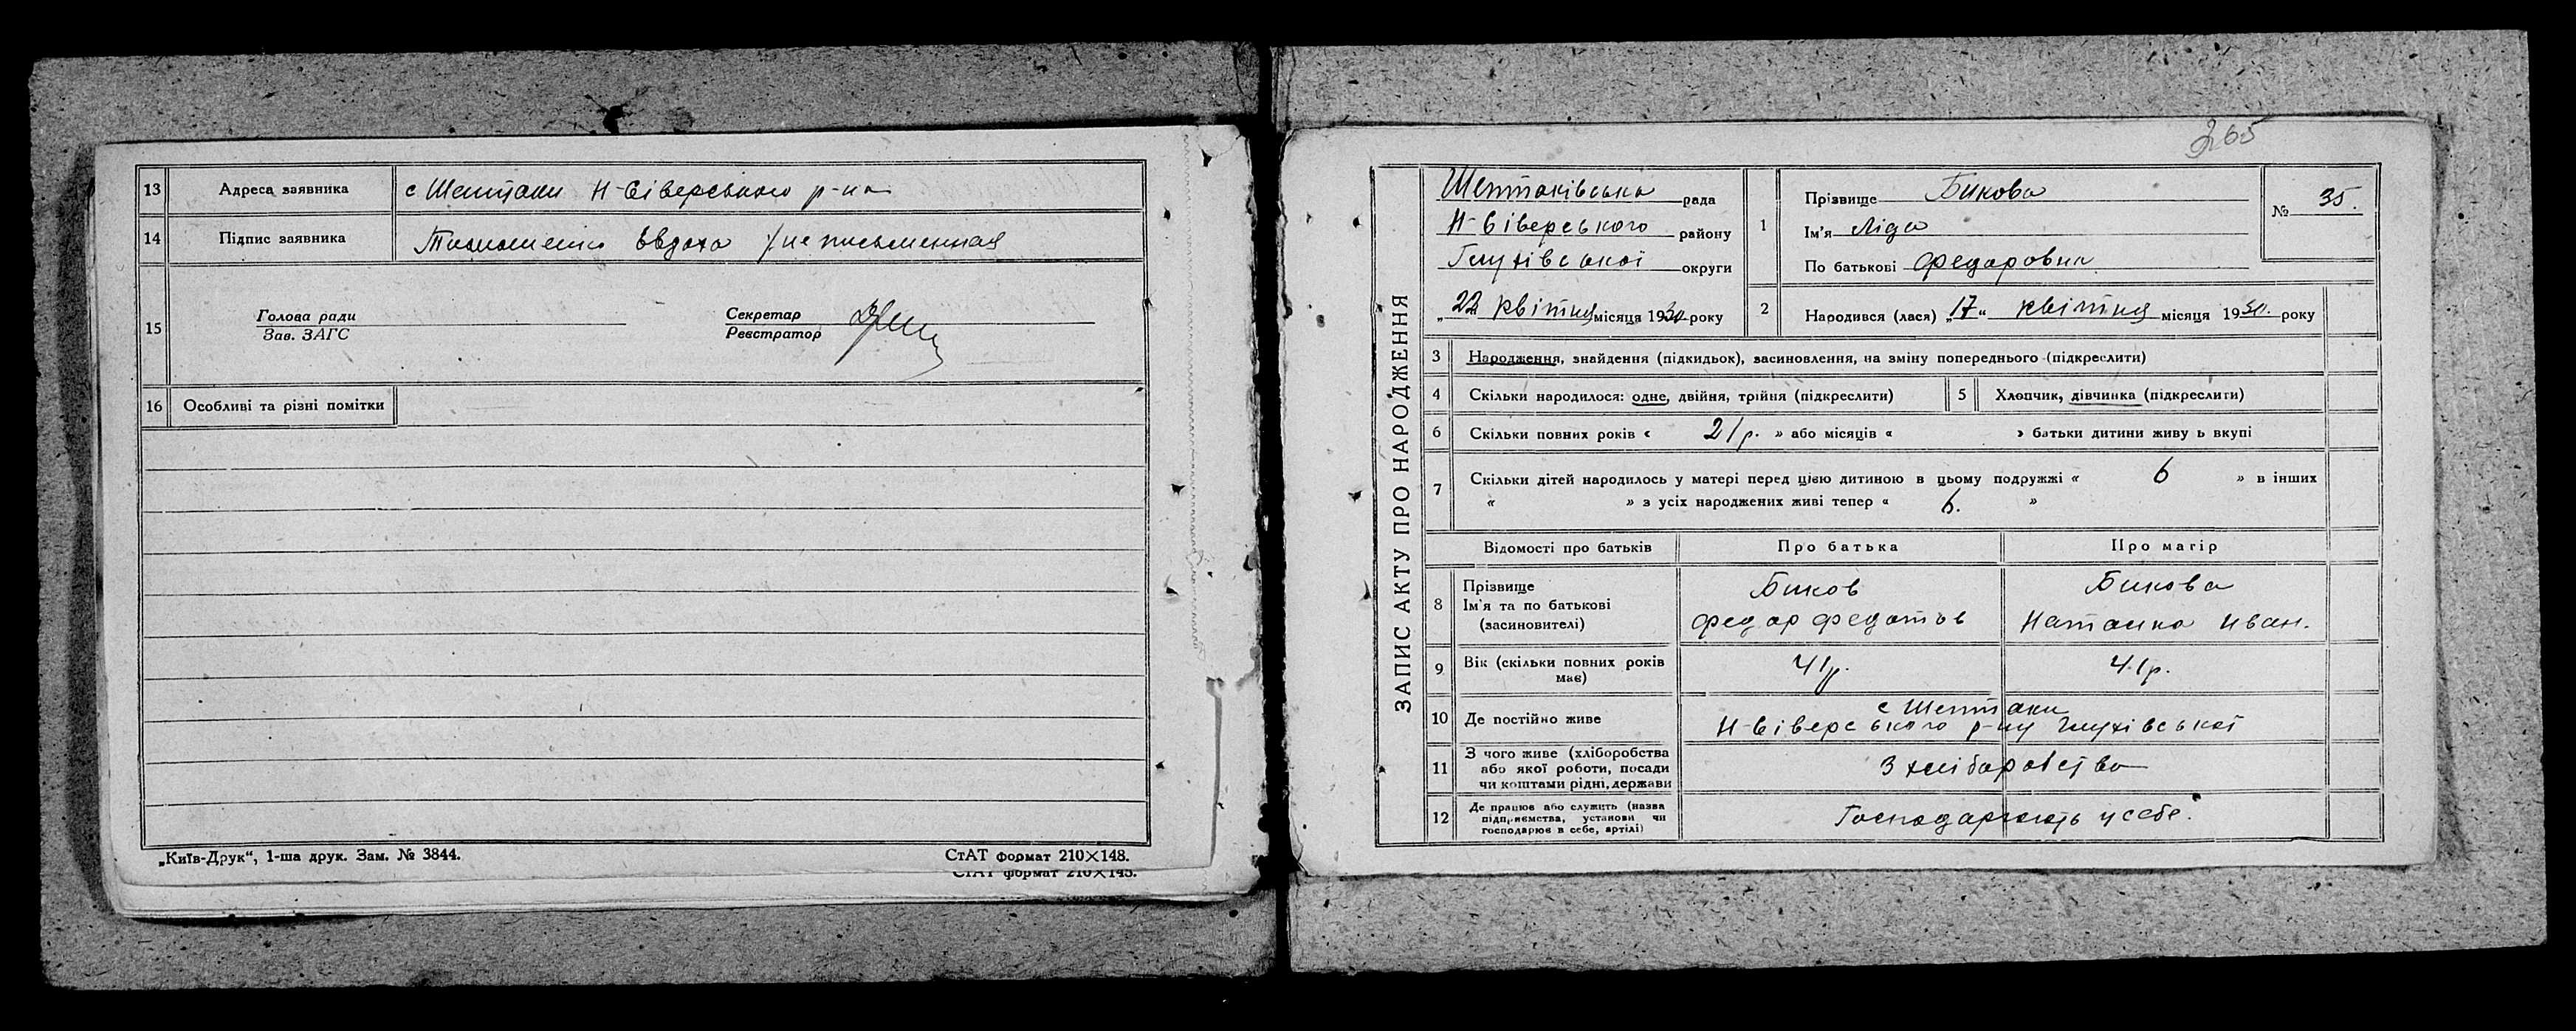 13 Адреса заявника с Шептаки Н-Сіверського р-на
14 Підпис заявника Тимошенко Евдоха /не письменная
15 Голова ради
Зав. ЗАГС
Секретар
Реєстратор
16 Особливі та різні помітки
„Київ-Друк“, 1-ша друк. Зам. № 3844.
СтАТ формат 210×148.
СтАТ формат 210×148.
265
ЗАПИС АКТУ ПРО НАРОДЖЕННЯ
Шептаківська рада
Н-Сіверського району
Глухівської округи
„22 квітня місяця 1930 року
1 Прізвище Бикова
Ім'я Ліда
По батькові Федоровна
№ 35.
2 Народився (лася) „17“ квітня місяця 1930. року
3 Народження, знайдення (підкидьок), засиновлення, на зміну попереднього (підкреслити)
4 Скільки народилося: одне, двійня, трійня (підкреслити)
5 Хлопчик, дівчинка (підкреслити)
6 Скільки повних років « 21 р. » або місяців « » батьки дитини живу ь вкупі
7 Скільки дітей народилось у матері перед цією дитиною в цьому подружжі « 6 » в інших
« » з усіх народжених живі тепер « 6. »
Відомості про батьків Про батька Про матір
8 Прізвище
Ім'я та по батькові
(засиновителі)
Биков
Федор Федотов
Бикова
Наталка Иван.
9 Вік (скільки повних років
має)
41 р.
41 р.
10 Де постійно живе
с Шептаки
Н-Сіверського р-ну Глухівської
11 З чого живе (хліборобства
або якої роботи, посади
чи коштами рідні, держави
З хліборобства
12 Де працює або служить (назва
підприємства, установи чи
господарює в себе, артілі)
Господарюють у себе.